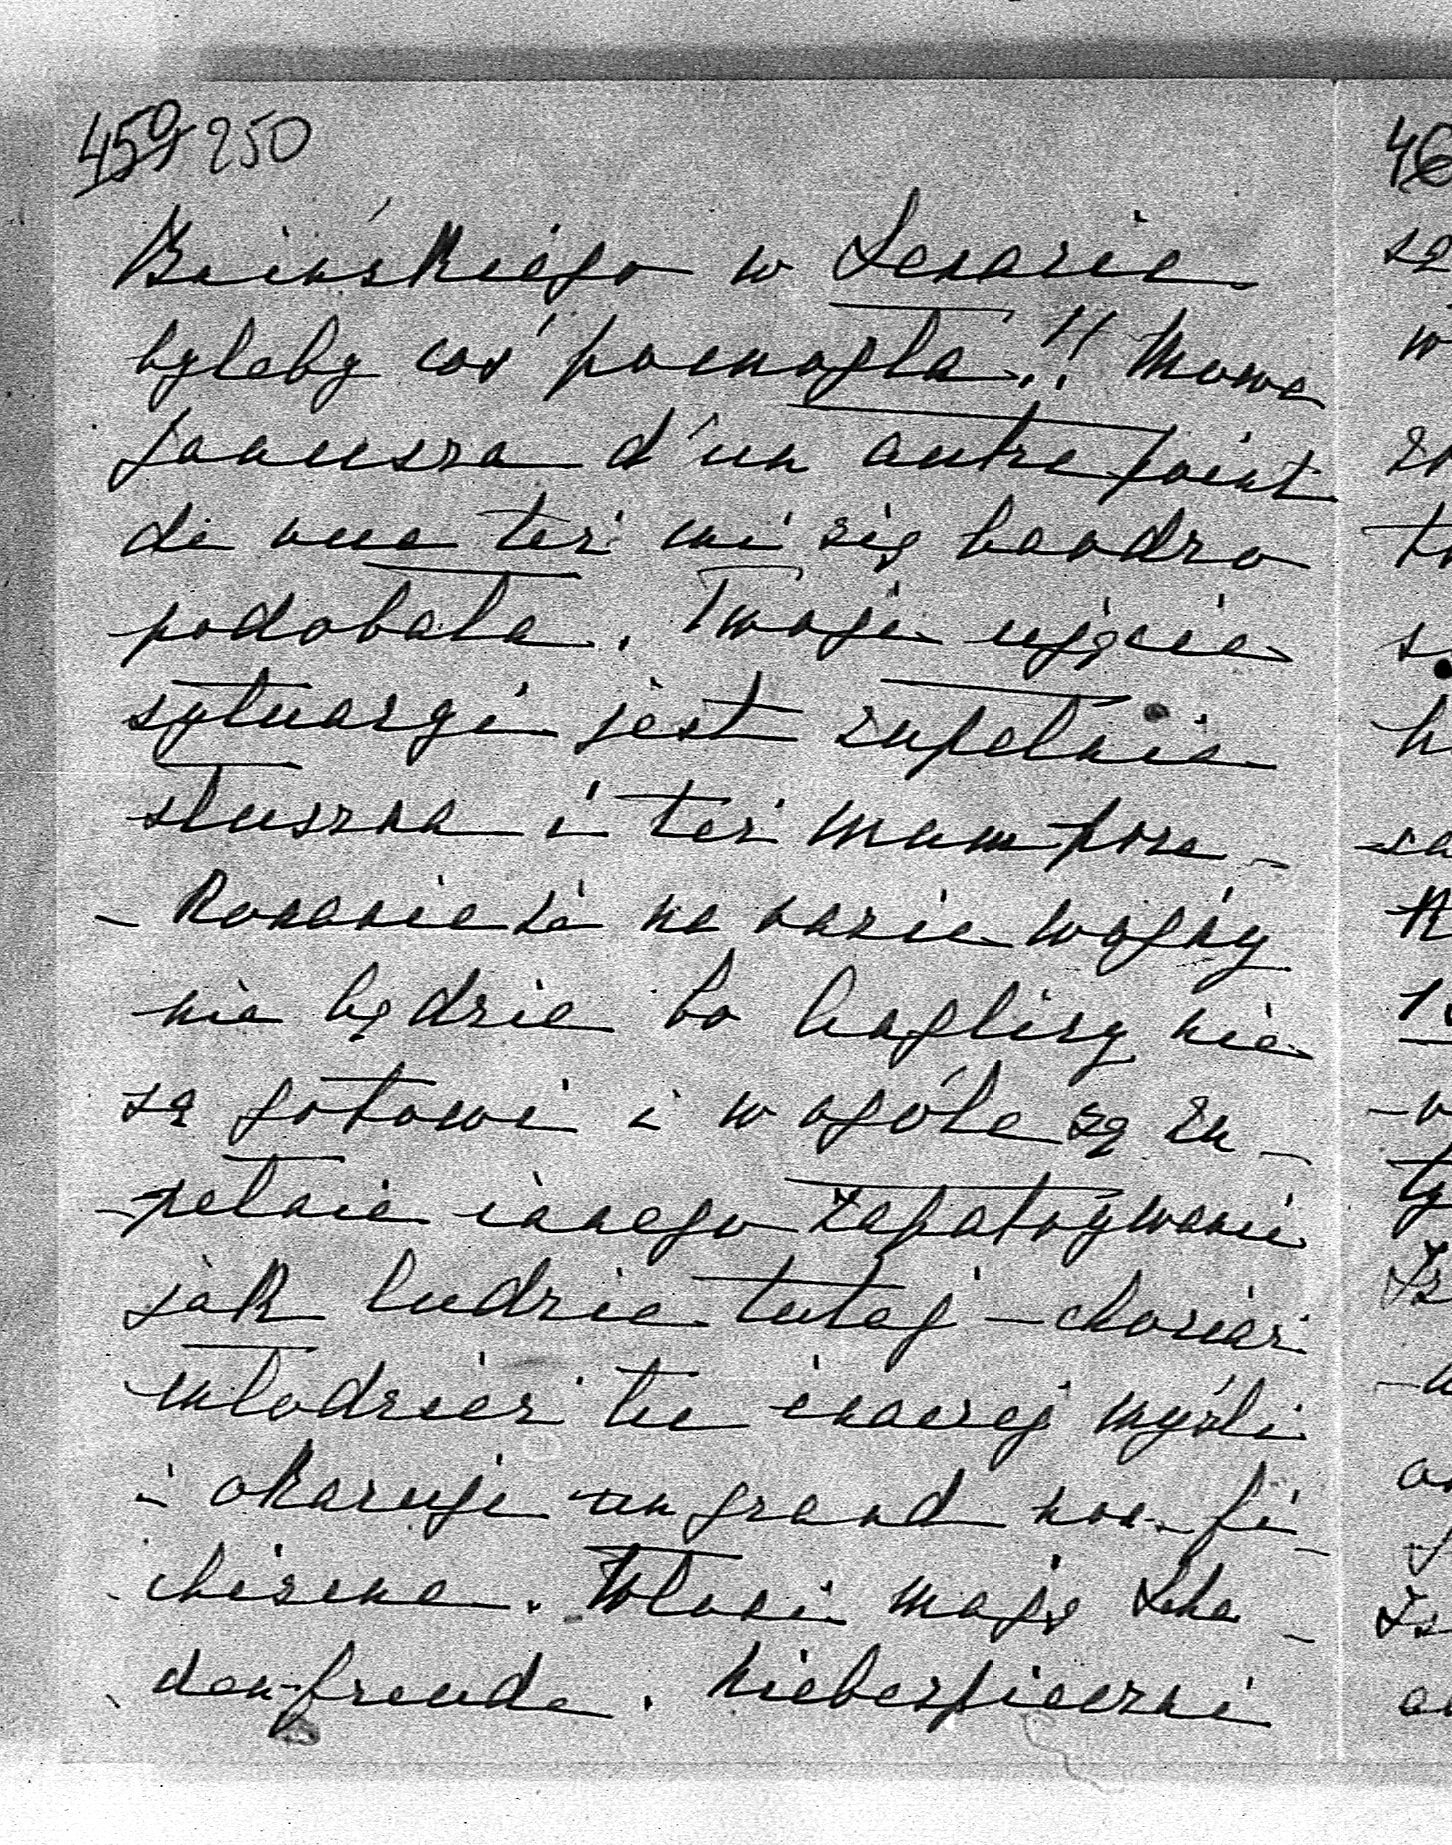 459 250
Bnińskiego w Senacie
byleby coś pomogła!! Mowa
Janusza d'un autre point
de vue też mi się bardzo
podobała. Twoje ujęcie
sytuacji jest zupełnie
słuszna i też mam prze-
-konanie że na razie wojny
nie będzie bo Anglicy nie
są gotowi i w ogóle są zu-
-pełnie innego zapatrywanie
jak ludzie tutaj – chociaż
młodzież tu inaczej myśli
i okazuje un grand non-fi-
chisme. Włosi mają Scha-
den-freude. Niebezpieczni